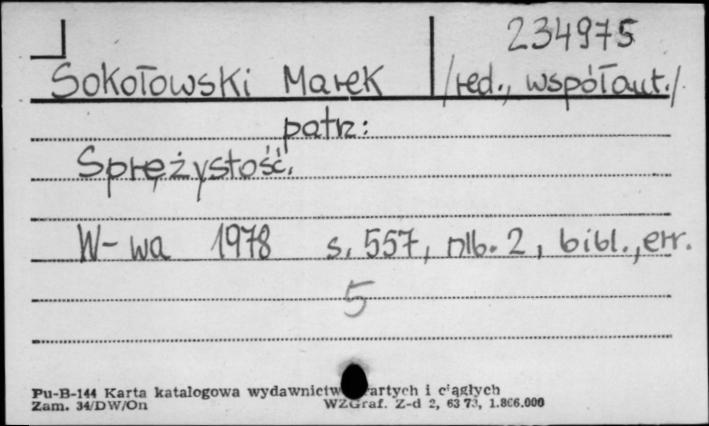 234975
Sokołowski Marek /red., współaut./
patrz:
Sprężystość.
W-wa 1978 s. 557, nlb. 2, bibl., err.
5
Pu-B-144 Karta katalogowa wydawnictw i ciągłych
Zam. 34/DW/On WZGraf. Z-d 2, 63 73, 1.866.000